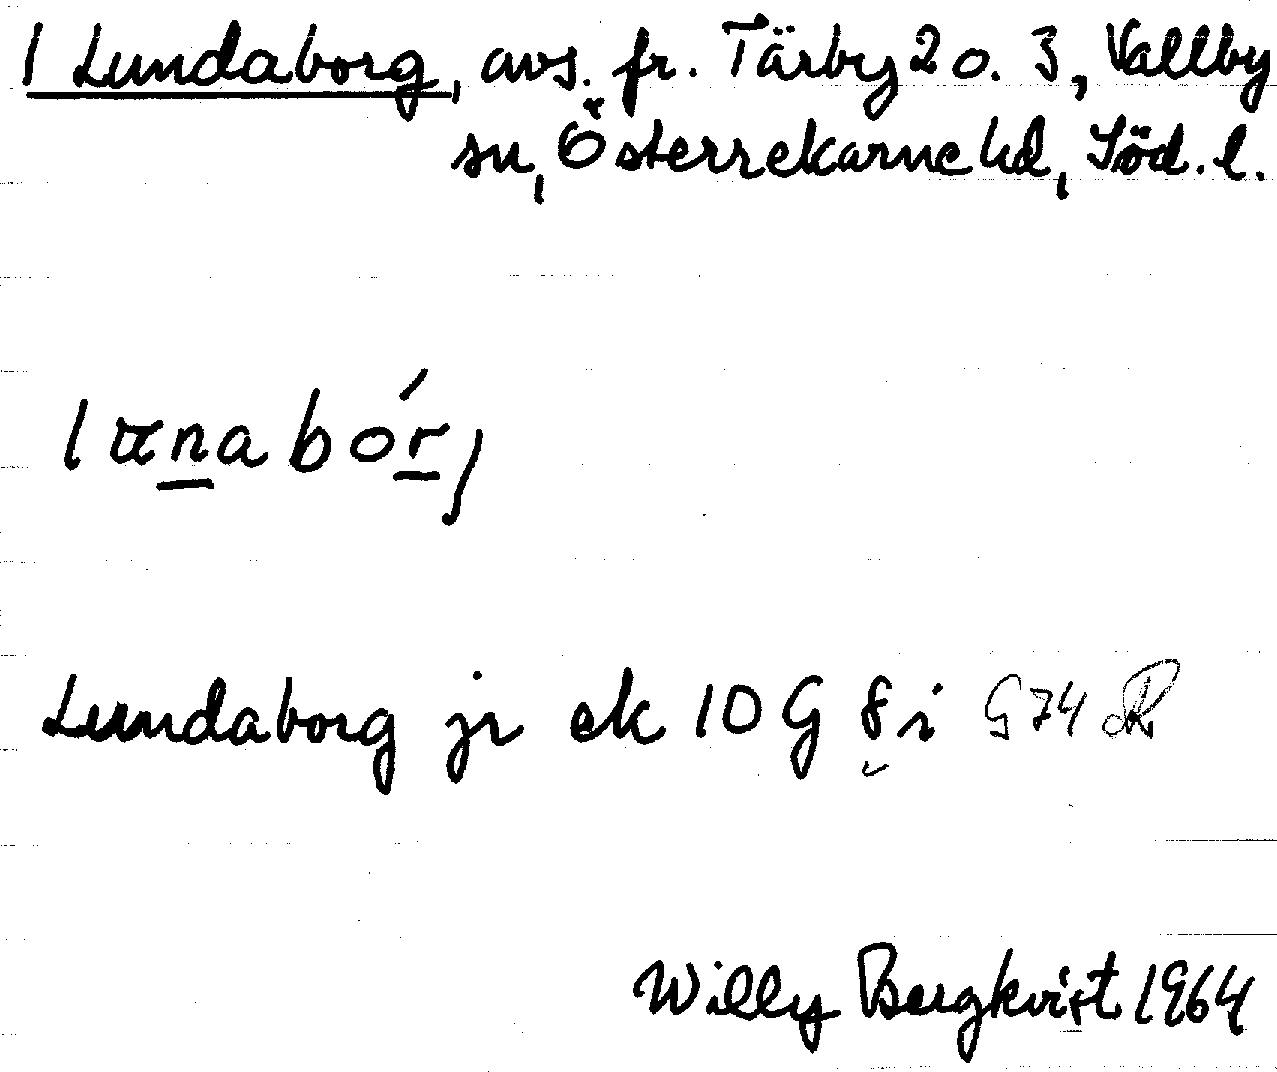 1 Lundaborg, avs. fr. Tärby 2 o. 3, Vallby
sn, Österrekarne hd, Söd. l.
lαnabórj
Lundaborg jr ek 10 G 8 i G74
Willy Bergkvist 1964